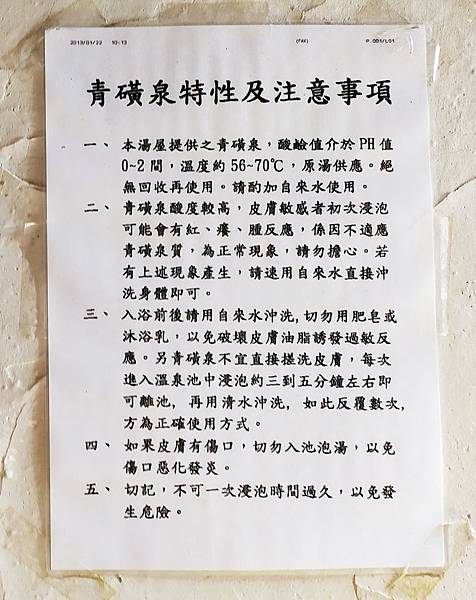 2013/01/22 10:13 (FAX) P.001/001
青磺泉特性及注意事項
一、本湯屋提供之青磺泉，酸鹼值介於PH值
0~2間，溫度約56~70℃，原湯供應。絕
無回收再使用。請酌加自來水使用。
二、青磺泉酸度較高，皮膚敏感者初次浸泡
可能會有紅、癢、腫反應，係因不適應
青磺泉質，為正常現象，請勿擔心。若
有上述現象產生，請速用自來水直接沖
洗身體即可。
三、入浴前後請用自來水沖洗,切勿用肥皂或
沐浴乳，以免破壞皮膚油脂誘發過敏反
應。另青磺泉不宜直接搓洗皮膚，每次
進入溫泉池中浸泡約三到五分鐘左右即
可離池，再用清水沖洗，如此反覆數次,
方為正確使用方式。
四、如果皮膚有傷口，切勿入池泡湯，以免
傷口惡化發炎。
五、切記，不可一次浸泡時間過久，以免發
生危險。